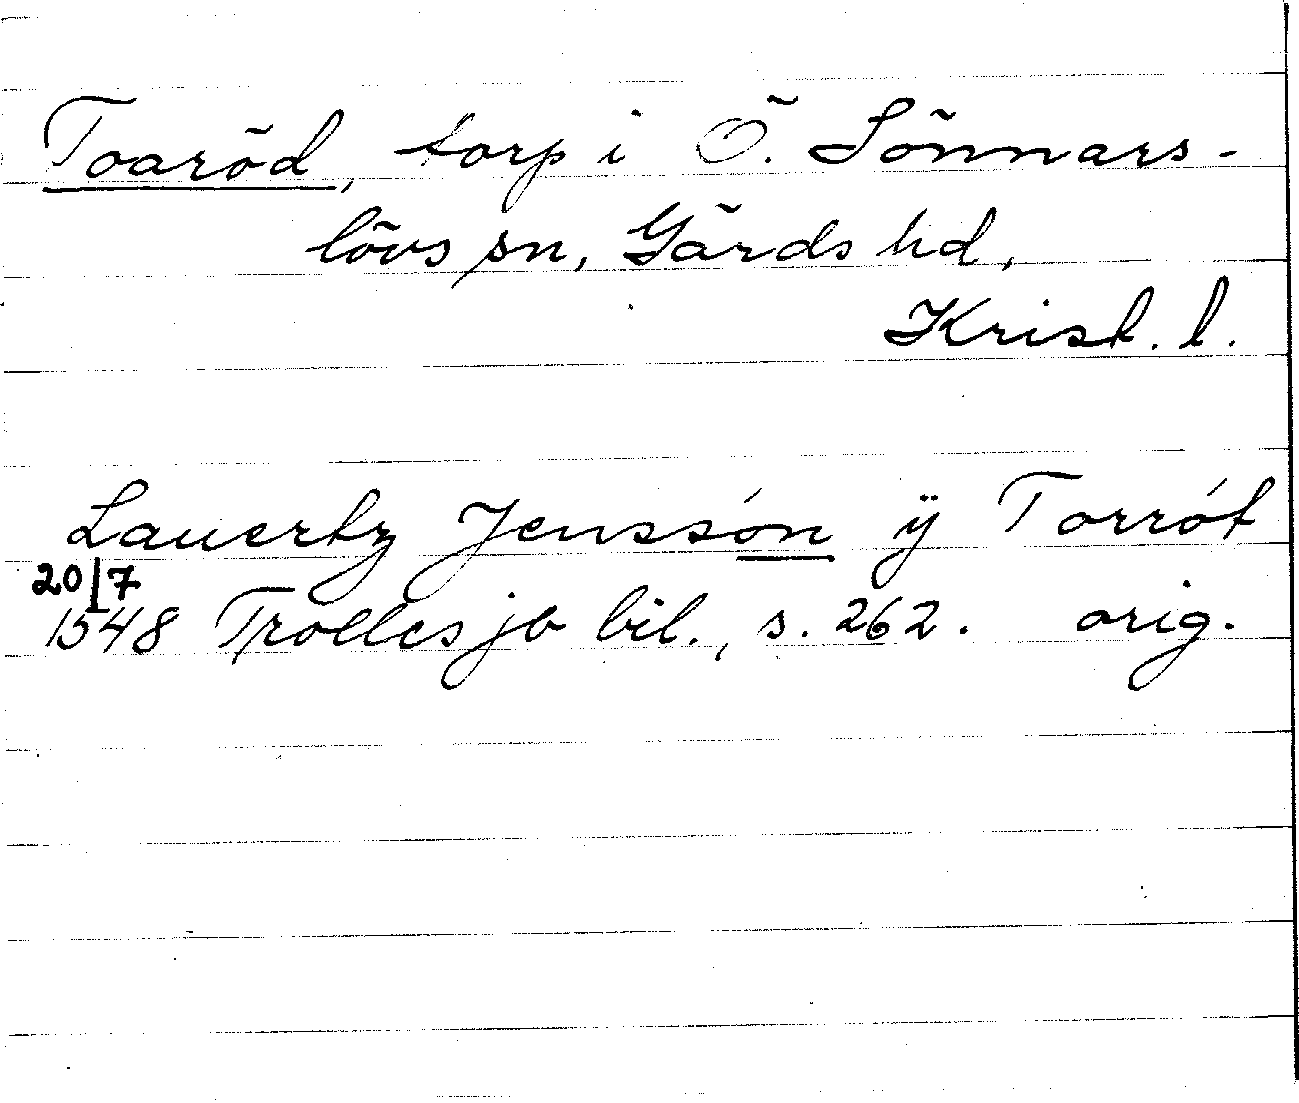 Toaröd, torp i Ö. Sönnars-
lövs sn, Gärds hd,
Krist. l.
Lauertz Jenssón ÿ Torrót
20/7
1548 Trolles jb bil., s. 262. orig.